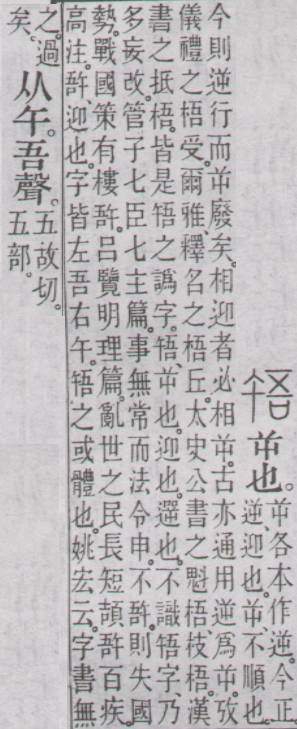 啎
屰也。
屰各本作逆。今正。
逆、迎也。屰不順也。
今則逆行而屰廢矣。相迎者必相屰。古亦通用逆爲屰。攷
儀禮之梧受。爾雅、釋名之梧丘。太史公書之魁梧枝梧。漢
書之抵梧。皆是牾之譌字。牾、屰也。迎也。遻也。不識牾字、乃
多妄改。管子七臣七主篇。事無常而法令申。不啎則失國
勢。戰國策有樓啎。呂覽明理篇。亂世之民長短頡啎百疾。
高注。啎、迎也。字皆左吾右午。牾之或體也。姚宏云。字書無
之。過
矣。
从午。吾聲。
五故切。
五部。